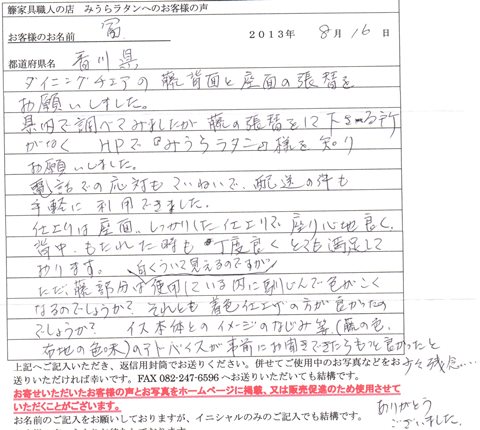 籐家具職人の店 みうらラタンへのお客様の声
お客様のお名前 富 2013年 8月 16日
都道府県名 香川県
ダイニングチェアの籐背面と座面の張替を
お願いしました。
県内で調べてみましたが籐の張替をして下さる所
がなく HPで『みうらラタン』様を知り
お願いしました。
電話での応対もていねいで、配送の件も
手軽に利用できました。
仕上りは座面、しっかりした仕上りで座り心地良く、
背中、もたれた時も丁度良くとても満足して
おります。 白くういて見えるのですが
ただ、籐部分は使用している内に馴じんで色がこく
なるのでしょうか? それとも着色仕上げの方が良かったの
でしょうか? イス本体とのイメージのなじみ等(籐の色、
布地の色味)のアドバイスが事前にお聞きできたらもっと良かったと
少々残念…
上記へご記入いただき、返信用封筒でお送りください。併せてご使用中のお写真などをお
送りいただければ幸いです。FAX 082-247-6596 へお送りいただいても結構です。
お寄せいただいたお客様の声とお写真をホームページに掲載、又は販売促進のため使用させて
いただくことがございます。
ありがとう
ございました。
お名前のご記入をお願いしておりますが、イニシャルのみのご記入でも結構です。